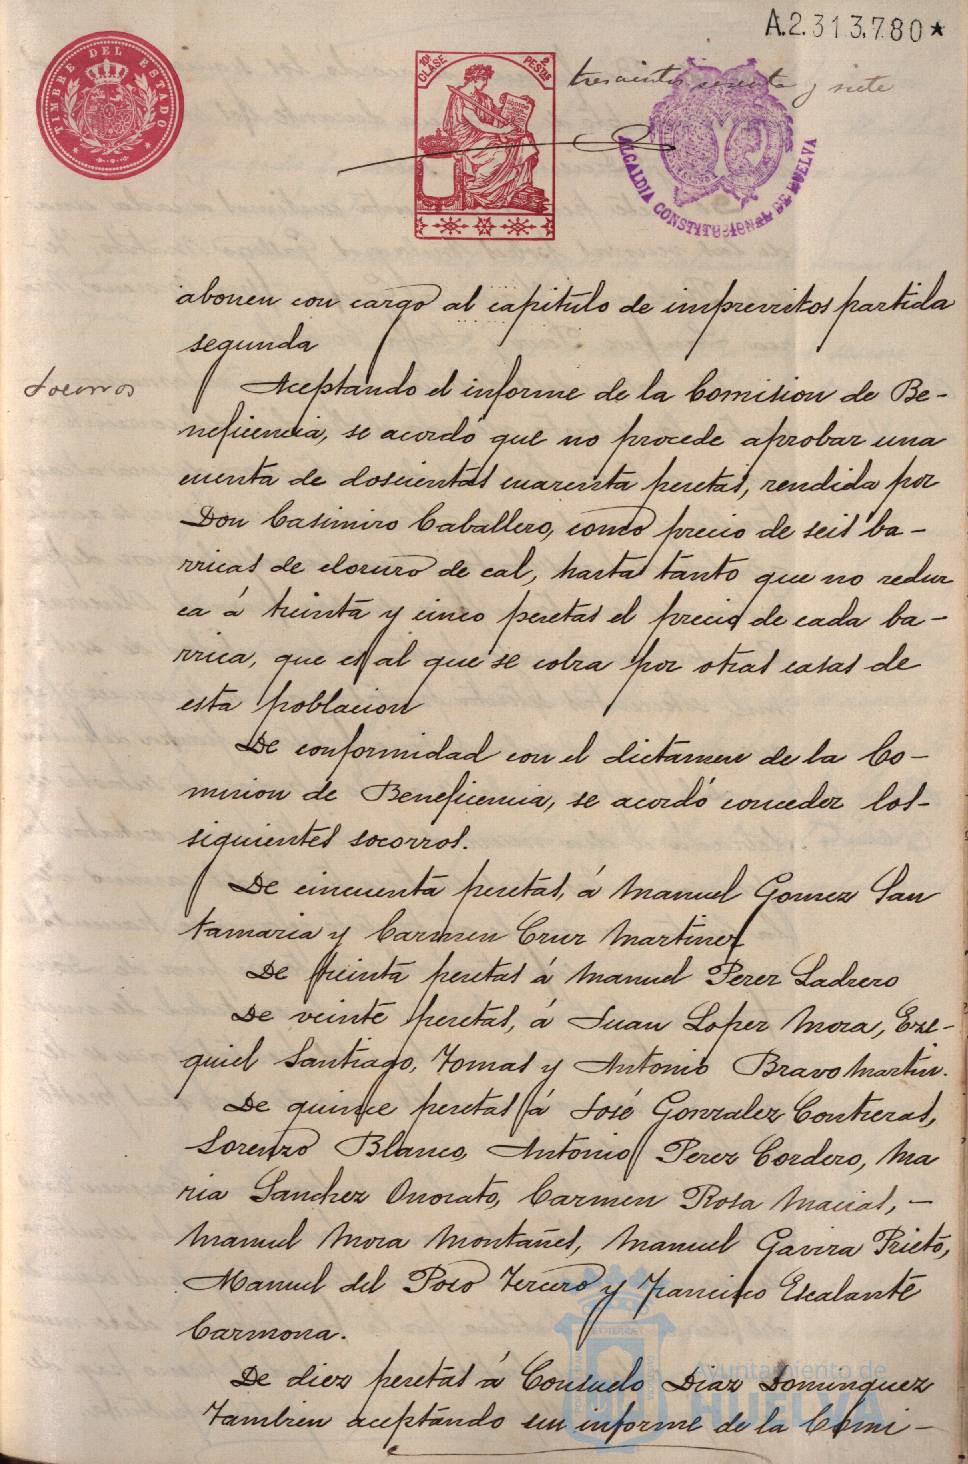 A.2.313.780★
TIMBRE DEL ESTADO
10ª CLASE
2 PESTAS
trescientos sesenta y siete
ALCALDIA CONSTITUCIONAL DE HUELVA
abonen con cargo al capitulo de imprevistos partida
segunda
Socorros
Aceptando el informe de la Comision de Be-
neficencia, se acordó que no procede aprobar una
cuenta de doscientas cuarenta pesetas, rendida por
Don Casimiro Caballero, como precio de seis ba-
rricas de cloruro de cal, hasta tanto que no reduz
ca á treinta y cinco pesetas el precio de cada ba-
rrica, que es al que se cobra por otras casas de
esta poblacion
De conformidad con el dictamen de la Co-
mision de Beneficencia, se acordó conceder los-
siguientes socorros.
De cincuenta pesetas, á Manuel Gomez San
tamaria y Carmen Cruz Martinez
De treinta pesetas á Manuel Perez Ladrero
De veinte pesetas, á Juan Lopez Mora, Eze-
quiel Santiago, Tomas y Antonio Bravo Martin.
De quince pesetas á José Gonzalez Contreras,
Lorenzo Blanco, Antonio Perez Cordero, Ma
ria Sanchez Onorato, Carmen Rosa Macias, -
Manuel Mora Montañes, Manuel Gavira Prieto,
Manuel del Poso Tercero y Francisco Escalante
Carmona.
De diez pesetas á Consuelo Diaz Dominguez
Tambien aceptando un informe de la Comi-
Ayuntamiento de
HUELVA